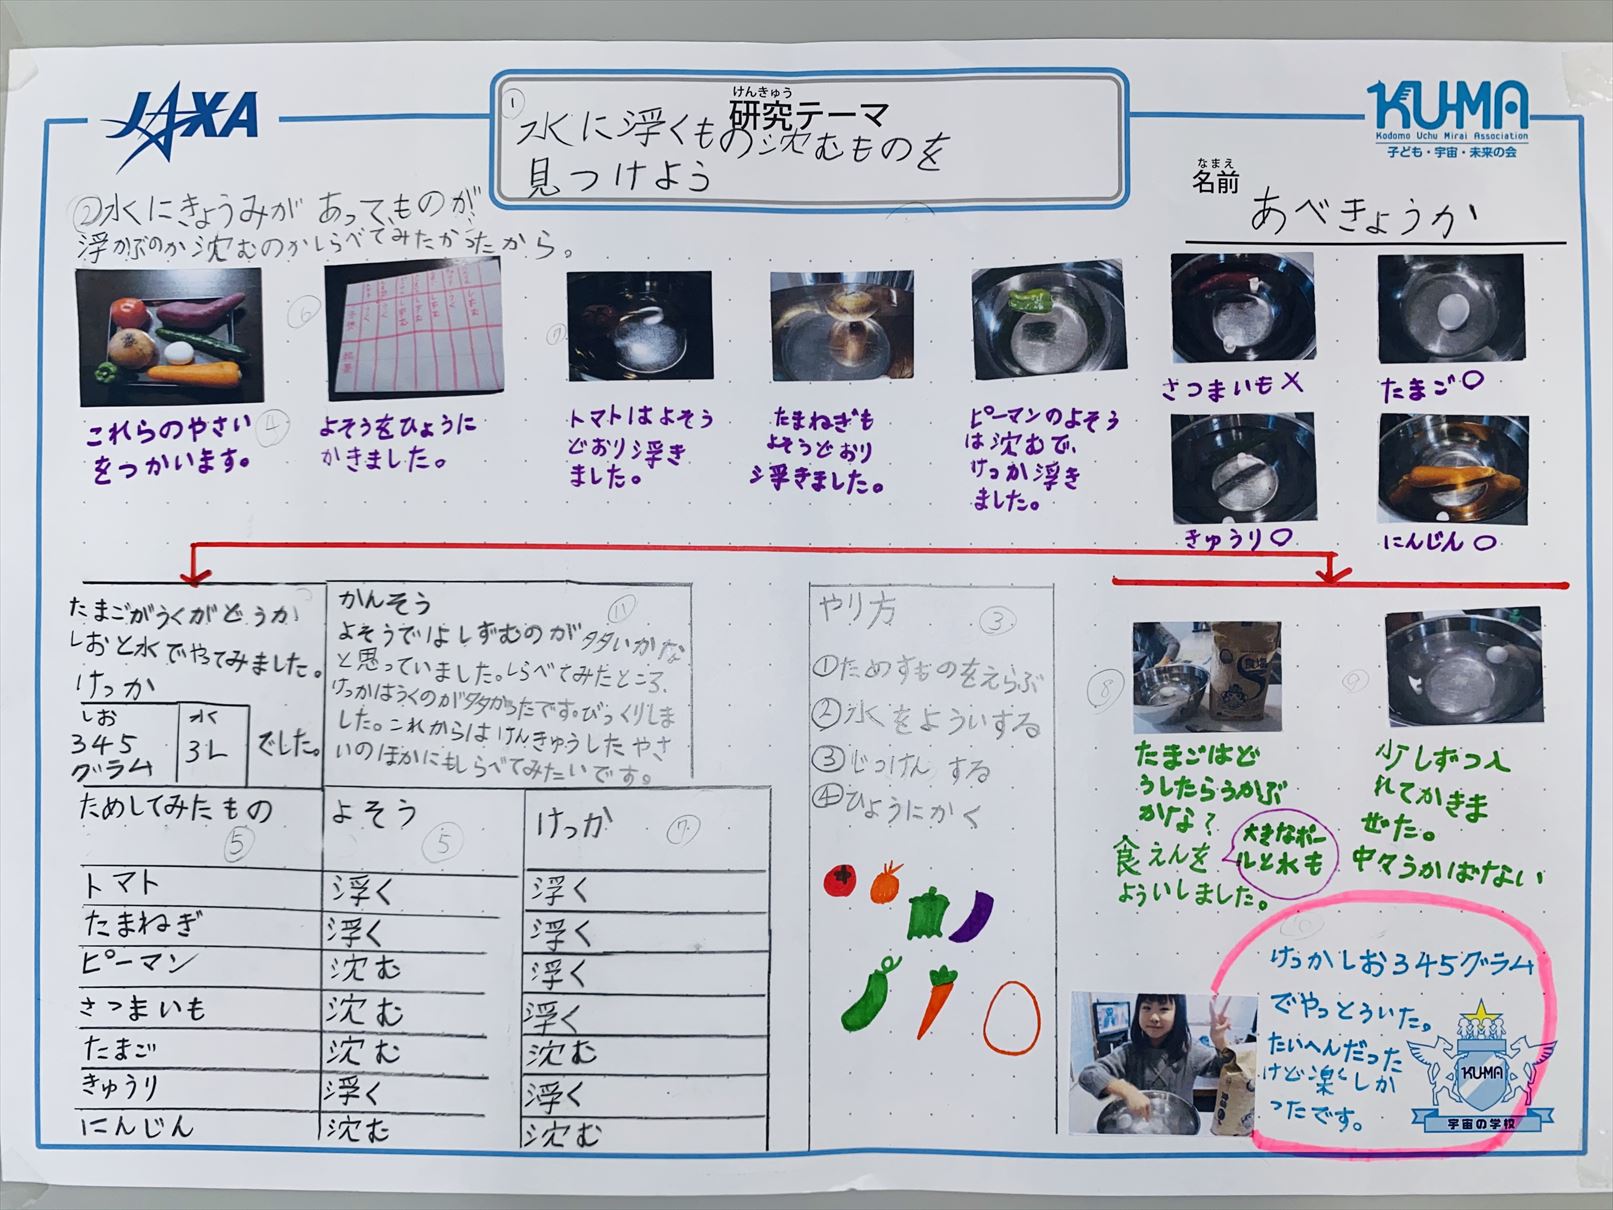 JAXA
けんきゅう
研究テーマ
①
水に浮くもの沈むものを
見つけよう
KU-MA
Kodomo Uchu Mirai Association
子ども・宇宙・未来の会
なまえ
名前
あべきょうか
②水にきょうみがあって、ものが
浮かぶのか沈むのかしらべてみたかったから。
これらのやさい
をつかいます。
④
⑥
よそうをひょうに
かきました。
⑦
トマトはよそう
どおり浮き
ました。
たまねぎも
よそうどおり
浮きました。
ピーマンのよそう
は沈むで、
けっか浮き
ました。
さつまいも×
たまご○
きゅうり○
にんじん○
たまごがうくがどうか
しおと水でやってみました。
けっか
しお
345
グラム
水
3L
でした。
かんそう
⑪
よそうではしずむのが多いかな
と思っていました。しらべてみたところ、
けっかはうくのが多かったです。びっくりしま
した。これからはけんきゅうしたやさ
いのほかにもしらべてみたいです。
ためしてみたもの
⑤
よそう
⑤
けっか
⑦
トマト 浮く 浮く
たまねぎ 浮く 浮く
ピーマン 沈む 浮く
さつまいも 沈む 浮く
たまご 沈む 沈む
きゅうり 浮く 浮く
にんじん 沈む 沈む
やり方
③
①ためすものをえらぶ
②水をよういする
③じっけんする
④ひょうにかく
⑧
食塩
たまごはど
うしたらうかぶ
かな?
食えんを
よういしました。
大きなボー
ルと水も
⑨
少しずつ入
れてかきま
ぜた。
中々うかばない
けっかしお345グラム
でやっとういた。
たいへんだった
けど楽しか
ったです。
KU-MA
宇宙の学校